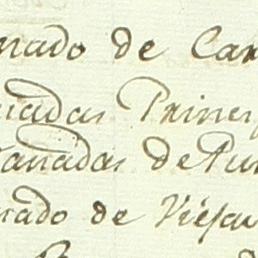 nado de Car
nadas Princi
anadas de Pu
nado de Viescu